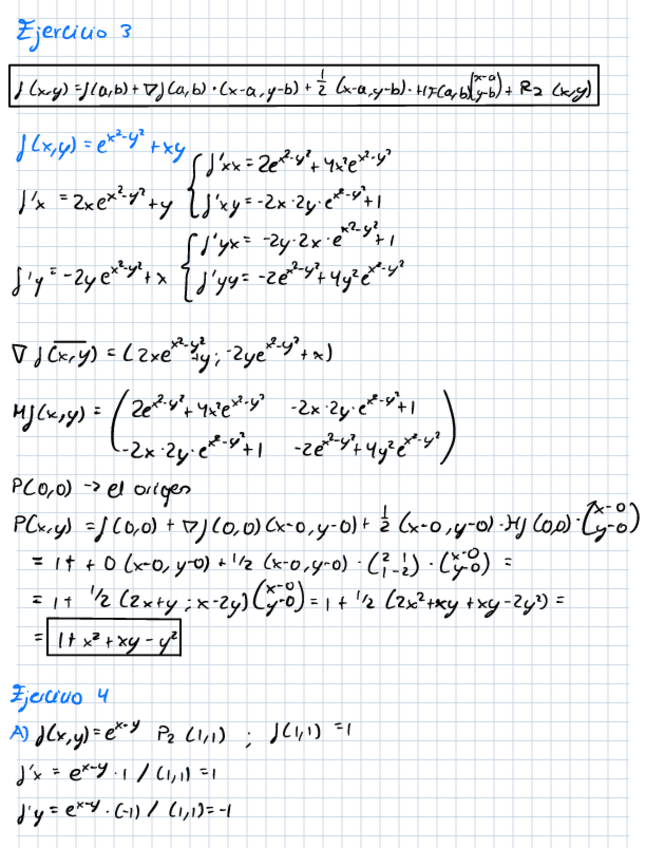 Ejercicio 3
f(x,y) = f(a,b) + ∇f(a,b)·(x-a, y-b) + 1/2 (x-a, y-b)·HF(a,b)(x-a y-b) + R2 (x,y)
f(x,y) = e^(x²-y²) + xy
f'x = 2xe^(x²-y²) + y { f'xx = 2e^(x²-y²) + 4x²e^(x²-y²)
f'xy = -2x·2y·e^(x²-y²) + 1
f'y = -2ye^(x²-y²) + x { f'yx = -2y·2x·e^(x²-y²) + 1
f'yy = -2e^(x²-y²) + 4y²e^(x²-y²)
∇f(x,y) = (2xe^(x²-y²) + y ; -2ye^(x²-y²) + x)
Hf(x,y) = ( 2e^(x²-y²) + 4x²e^(x²-y²) -2x·2y·e^(x²-y²) + 1
-2x·2y·e^(x²-y²) + 1 -2e^(x²-y²) + 4y²e^(x²-y²) )
P(0,0) -> el origen
P(x,y) = f(0,0) + ∇f(0,0)(x-0, y-0) + 1/2 (x-0, y-0)·Hf(0,0)·(x-0 y-0)
= 1 + + 0 (x-0, y-0) + 1/2 (x-0, y-0)·(2 1 1 -2)·(x-0 y-0) =
= 1 + 1/2 (2x+y ; x-2y)(x-0 y-0) = 1 + 1/2 (2x² + xy + xy - 2y²) =
= 1 + x² + xy - y²
Ejercicio 4
A) f(x,y) = e^(x-y) P2 (1,1) ; f(1,1) = 1
f'x = e^(x-y)·1 / (1,1) = 1
f'y = e^(x-y)·(-1) / (1,1) = -1